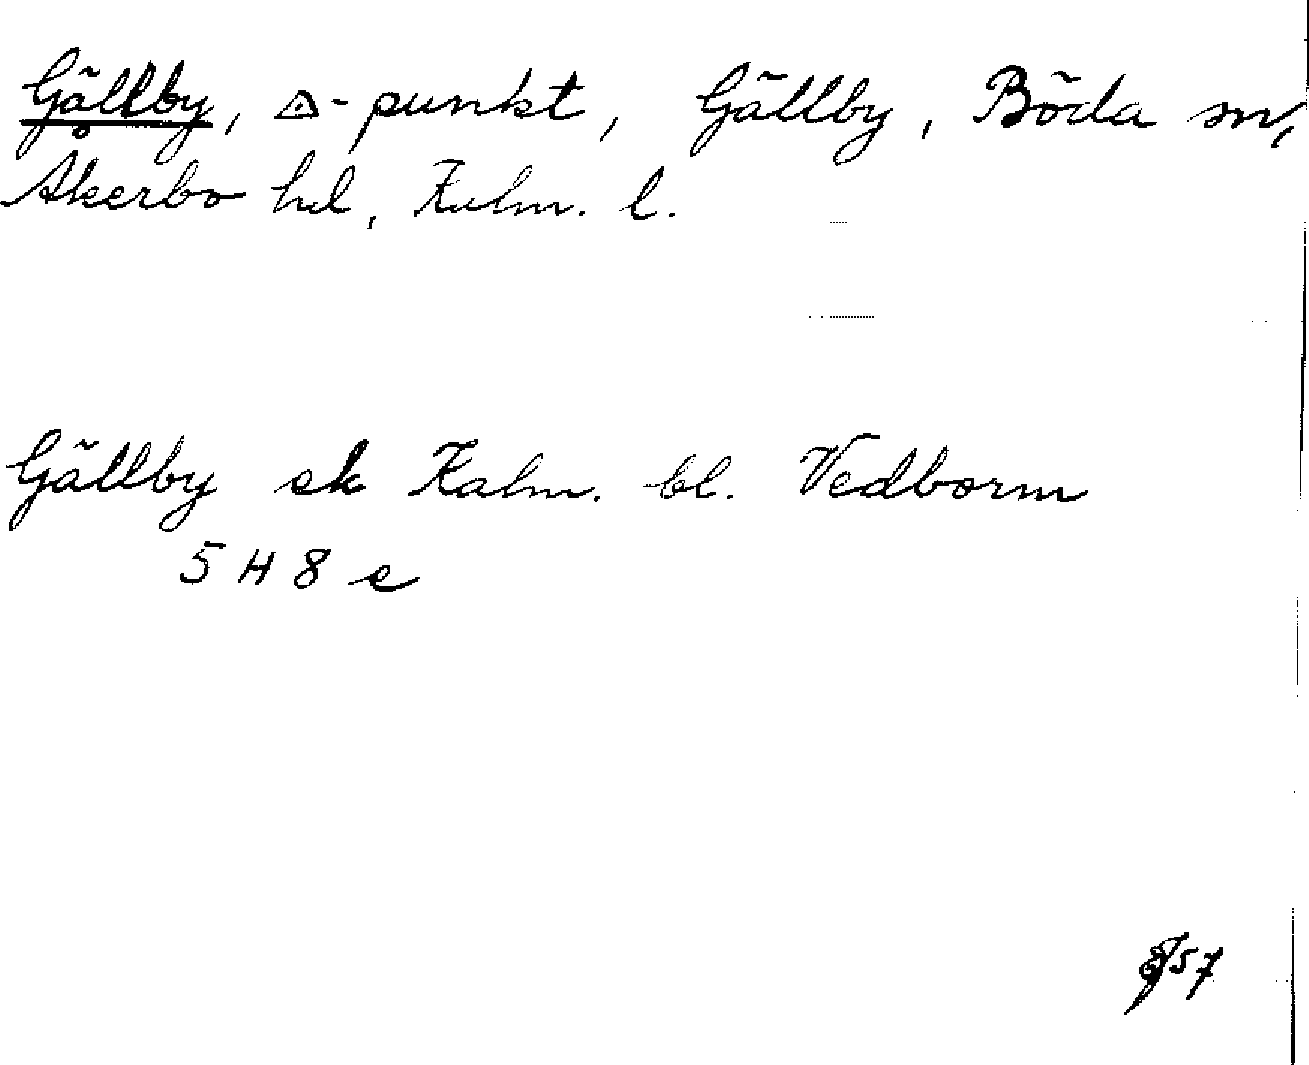 Gällby, △-punkt, Gällby, Böda sn,
Åkerbo hd, Kalm. l.
Gällby sk Kalm. bl. Vedborm
5 H 8 e
57